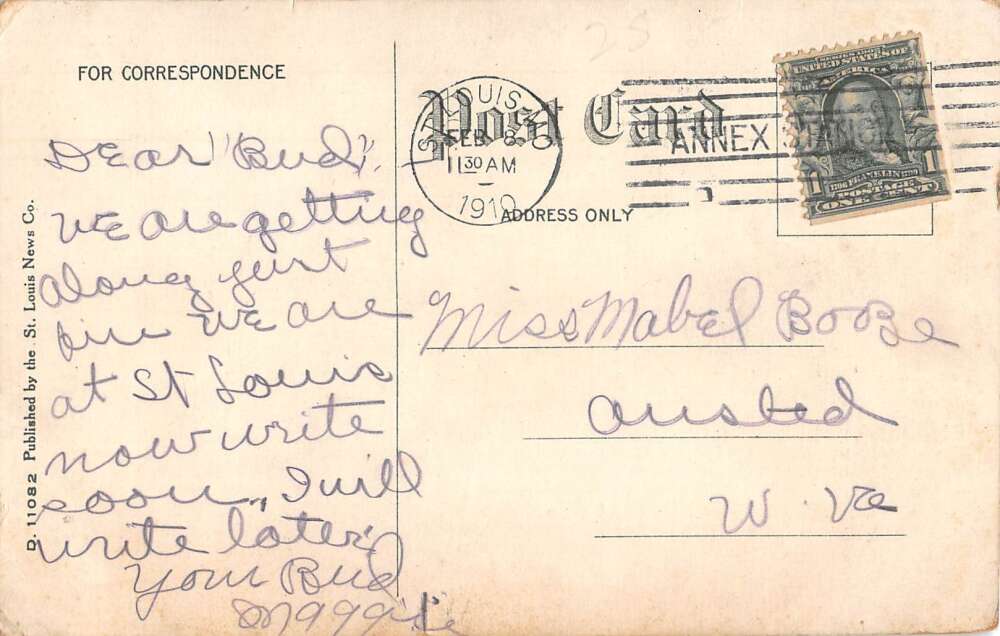 FOR CORRESPONDENCE
Dear "Bud".
We are getting
along just
fine we are
at St Louis
now write
soon, I will
write later
Your Bud
Maggie
D. 11082 Published by the St. Louis News Co.
Post Card
ADDRESS ONLY
ST. LOUIS, MO
FEB 8
11 30 AM
1910
ANNEX
SERIES 1902
UNITED STATES OF
AMERICA
1 FRANKLIN 1
POSTAGE
ONE CENT
Miss Mabel Booze
Ansted
W. Va